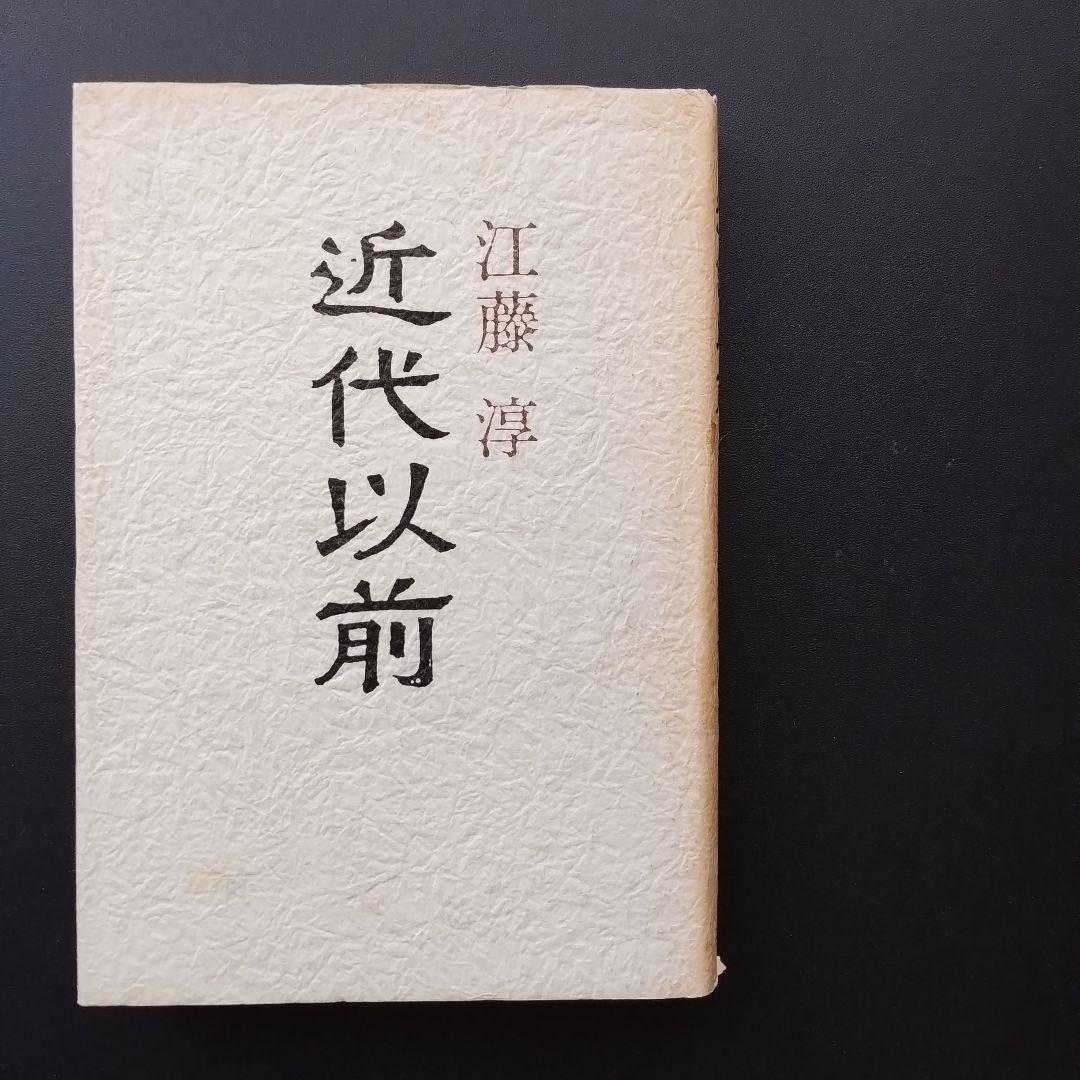 江藤 淳
近代以前